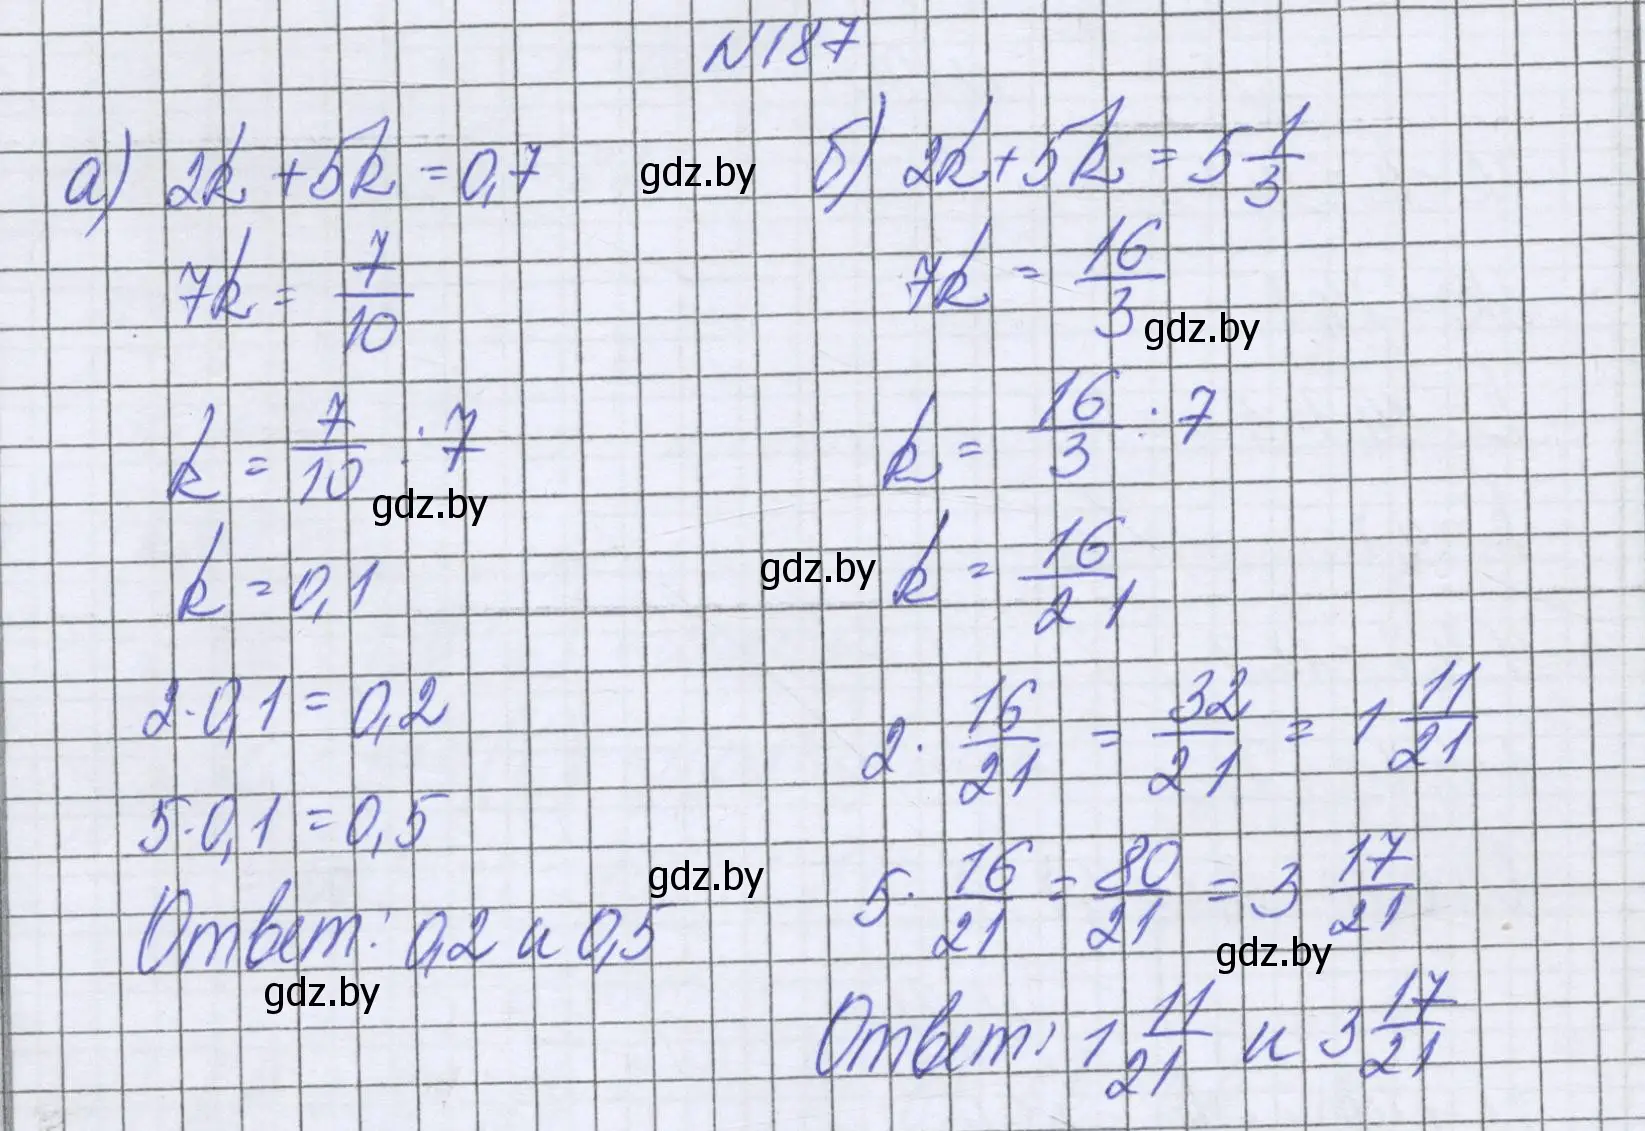 N187
а) 2k + 5k = 0,7
7k = 7/10
k = 7/10 : 7
k = 0,1
2 · 0,1 = 0,2
5 · 0,1 = 0,5
Ответ: 0,2 и 0,5
б) 2k + 5k = 5 1/3
7k = 16/3
k = 16/3 : 7
k = 16/21
2 · 16/21 = 32/21 = 1 11/21
5 · 16/21 = 80/21 = 3 17/21
Ответ: 1 11/21 и 3 17/21
gdz.by
gdz.by
gdz.by
gdz.by
gdz.by
gdz.by
gdz.by